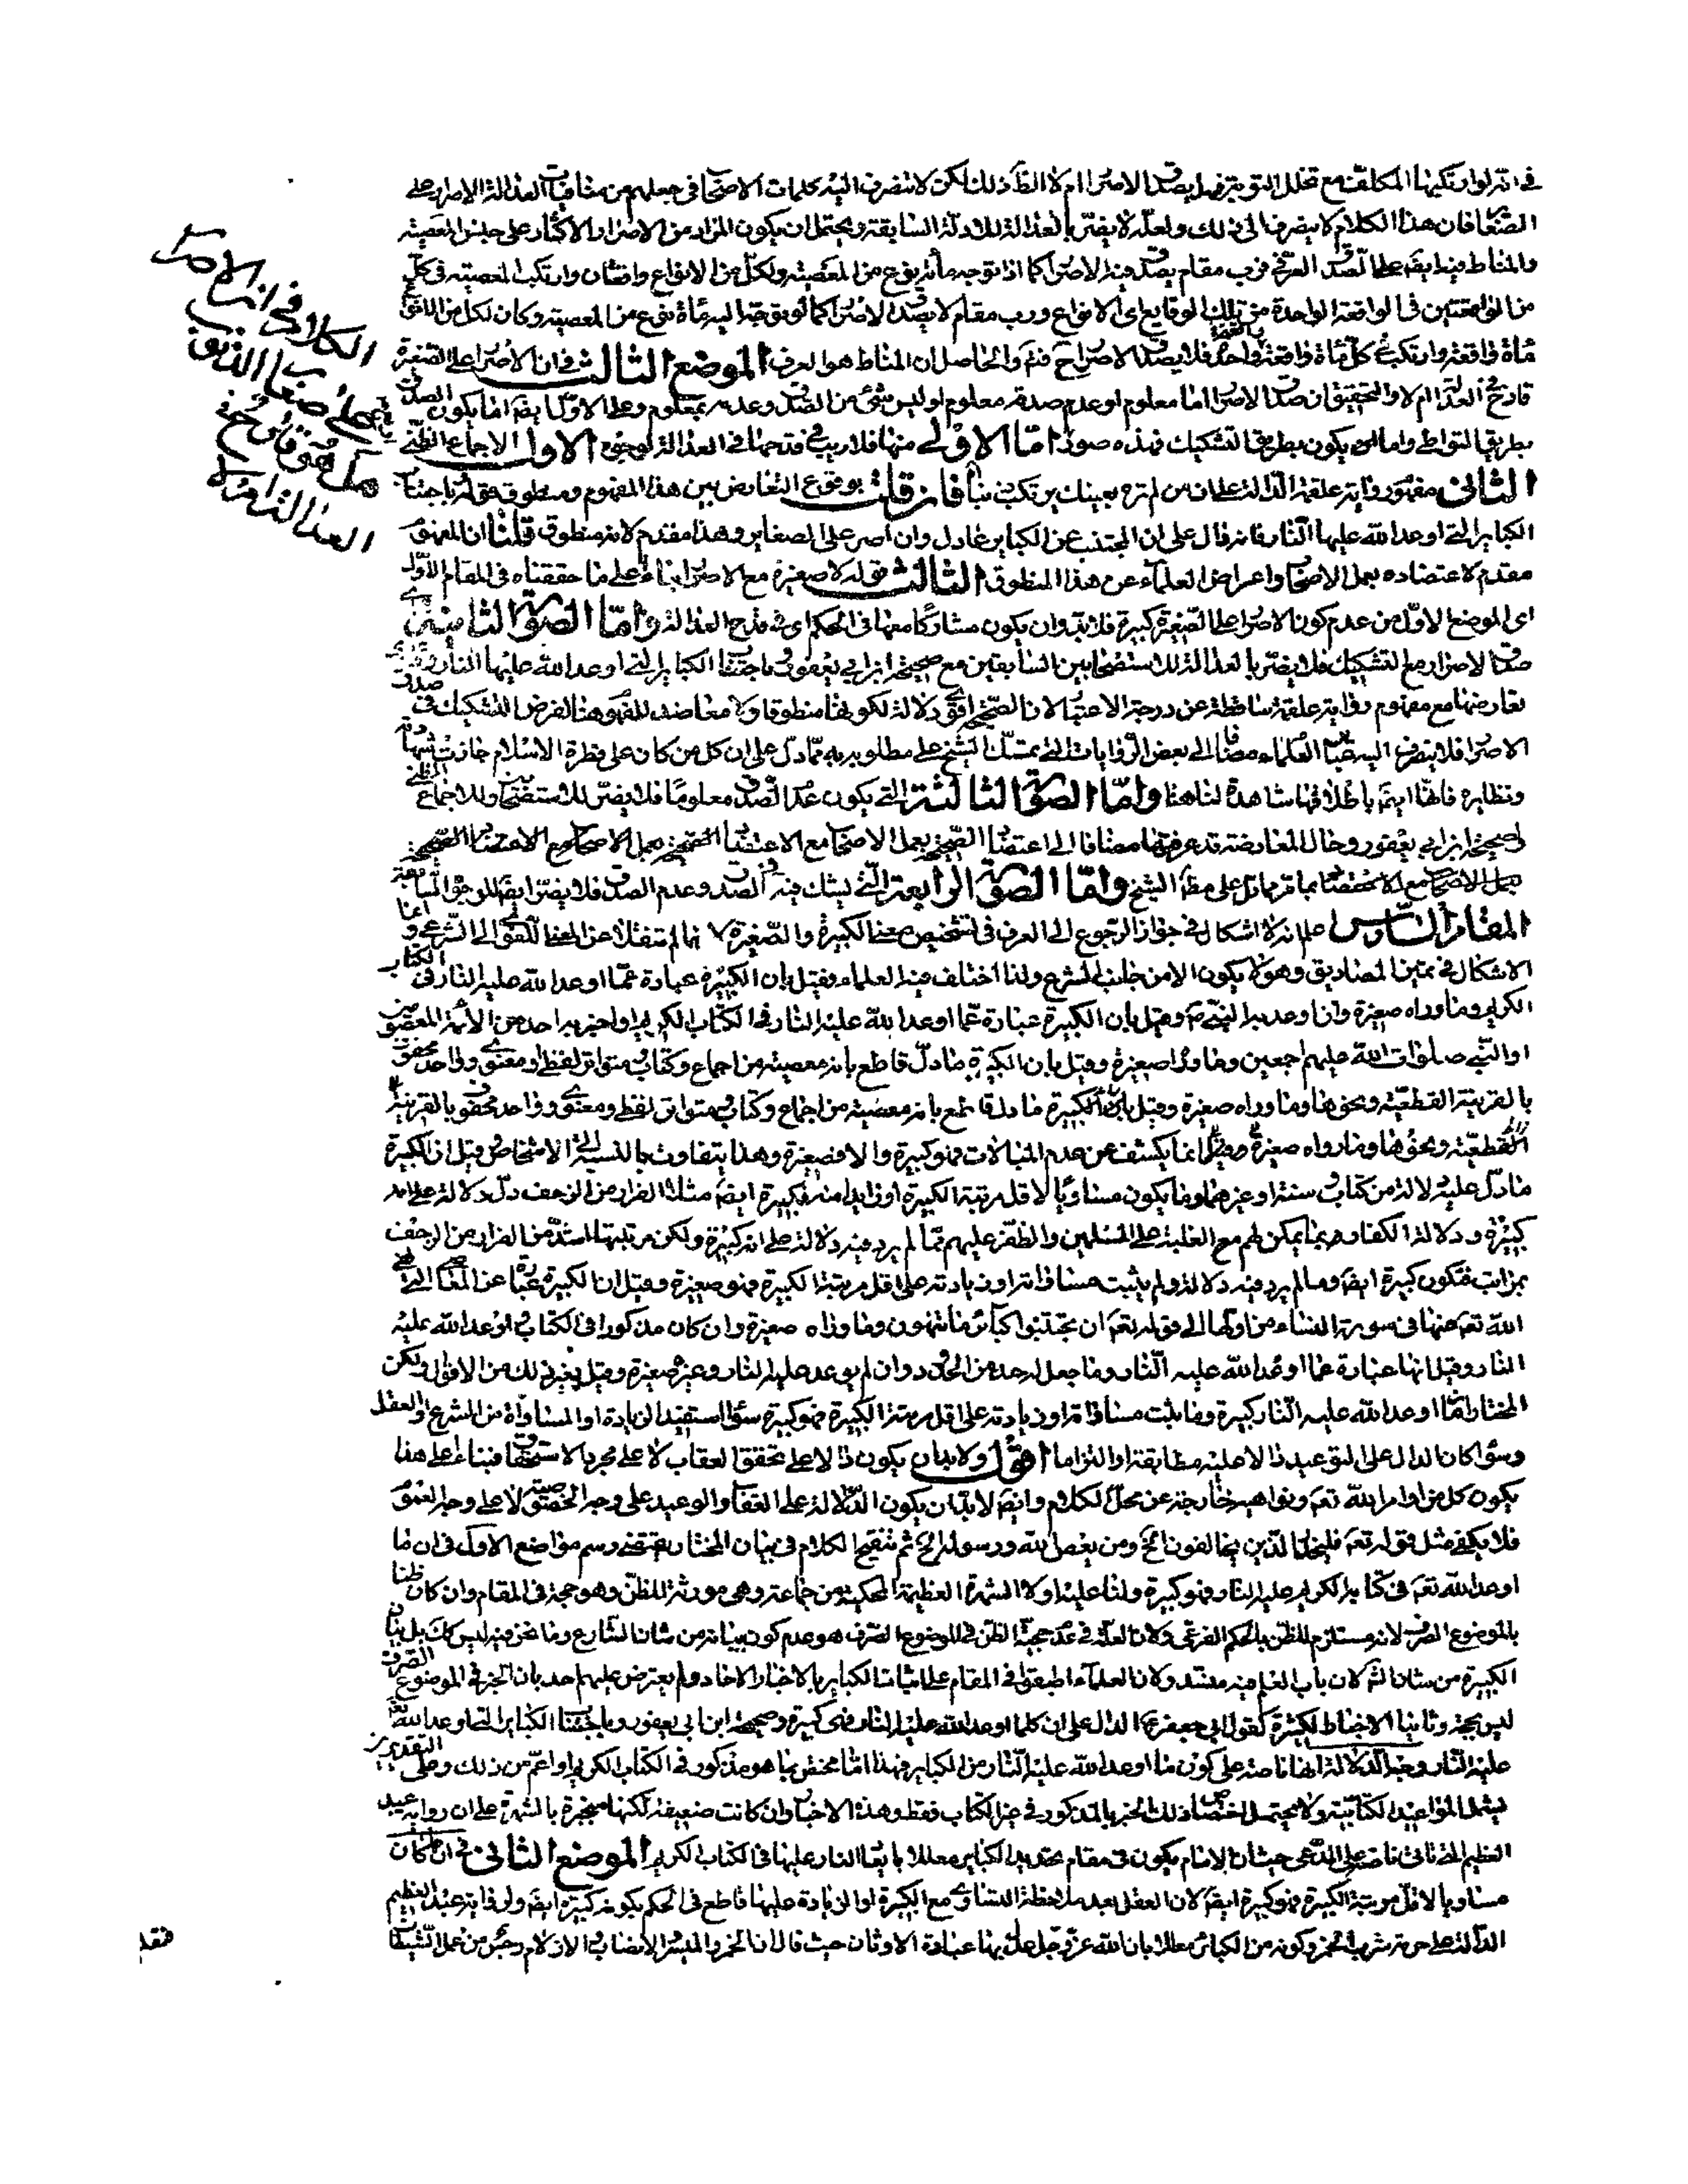 في انه لو ارتكبها المكلف مع تخلل التوبة فهل يصدق الاصرار ام لا الظ ذلك لكن لا ينصرف اليه كلمات الاصحاب في جعلهم من منافيات العدالة الاصرار على
الصغاير فان هذا الكلام لا ينصرف الى ذلك ولعله لا يضر بالعدالة للادلة السابقة ويحتمل ان يكون المراد من الاصرار الاكثار على جنس المعصية
والمناط فيه ايضا على الصدق العرفي فرب مقام يصدق فيه الاصرار كما اذا توجه مأة نوع من المعصية ولكل من الانواع واقعتان وارتكب المعصية في كل
من الواقعتين في الواقعة الواحدة من تلك الوقايع اى الانواع ورب مقام لا يصدق الاصرار كما لو توجه اليه مأة نوع من المعصية وكان لكل من الانواع
مأة واقعة وارتكب كل مأة واقعة واحدة فلا يصدق الاصرار ح فتم والحاصل ان المناط هو العرف الموضع الثالث في ان الاصرار على الصغيرة
قادح في العدالة ام لا والتحقيق ان صدق الاصرار اما معلوم او عدم صدقه معلوم او ليس شئ من الصدق وعدمه بمعلوم وعلى الاول ايضا اما يكون الصدق
بطريق التواطى واما ان يكون بطريق التشكيك فهذه صور اما الاولى منها فلا ريب في قدحها في العدالة لوجوه الاول الاجماع الظني
الثاني مفهوم رواية علقمة الدالة على ان من لم تره بعينك يرتكب ذنبا فان قلت بوقوع التعارض بين هذا المفهوم ومنطوق قوله باجتناب
الكباير التى اوعد الله عليها النار فانه دال على ان المجتنب عن الكباير عادل وان اصر على الصغاير وهذا مقدم لانه منطوق قلنا ان المفهوم
مقدم لاعتضاده بعمل الاصحاب واعراض العلماء عن هذا المنطوق الثالث قوله لا صغيرة مع الاصرار بناء على ما حققناه في المقام الاول
اى الموضع الاول من عدم كون الاصرار على الصغيرة كبيرة فلا بد وان يكون مشاركا معها في الحكم اى في قدح العدالة واما الصورة الثانية
صدق الاصرار مع التشكيك فلا يضر بالعدالة للاستصحابين السابقين مع صحيحة ابن ابي يعفور وباجتناب الكباير التى اوعد الله عليها النار
تعارضها مع مفهوم رواية علقمة ساقطة عن درجة الاعتبار لان الصحيحة اقوى دلالة لكونها منطوقا ولا معاضد للمفهوم هنا لفرض التشكيك في صدق
الاصرار فلا ينصرف اليه كلام العلماء مضافا الى بعض الروايات التى تمسك الشيخ على مطلوبه به مما دل على ان كل من كان على فطرة الاسلام جازت شهادته
ونظايره فانها ايضا باطلاقها شاهدة لنا هنا واما الصورة الثالثة التى يكون عدم الصدق معلوما فلا يضر للاستصحابين وللاجماع الظني
لصحيحة ابن ابي يعفور وحال المعارضة قد عرفتها مضافا الى اعتضاد الصحيحة بعمل الاصحاب مع الاعتضاد
بعمل الاصحاب مع الاعتضاد بما مر مما دل على مطلب الشيخ واما الصورة الرابعة التى يشك فيه في الصدق وعدم الصدق فلا يضر ايضا للوجوه السابقة
المقام السادس اعلم انه لا اشكال في جواز الرجوع الى العرف في تشخيص معنى الكبيرة والصغيرة لانها لم تنقلا عن المعنى اللغوي الى الشرعي وانما
الاشكال في تميز المصاديق وهو لا يكون الا من جانب الشرع ولذا اختلف فيه العلماء فقيل بان الكبيرة عبارة عما اوعد الله عليه النار في الكتاب
الكريم وما وراه صغيرة وان اوعد به النبي ص وقيل بان الكبيرة عبارة عما اوعد الله عليه النار في الكتاب الكريم او اخبر به احد من الأئمة المعصومين
او النبي صلوات الله عليهم اجمعين وما وراه صغيرة وقيل بان الكبيرة ما دل قاطع بانه معصية من اجماع وكتاب متواتر لفظا ومعنى وواحد محفوف
بالقرينة القطعية ونحوها وما وراه صغيرة وقيل بان الكبيرة ما دل قاطع بانه معصية من اجماع وكتاب ومتواتر لفظ ومعنى وواحد محفوف بالقرينة
القطعية ونحوها وما وراه صغيرة وقيل انما يكشف عن عدم المبالات فهو كبيرة والا فصغيرة وهذا يتفاوت بالنسبة الى الاشخاص وقيل ان الكبيرة
ما دل عليه دلالة من كتاب وسنة او غيرهما وما يكون مساويا لاقل مرتبة الكبيرة او زايدا منه فكبيرة ايضا مثلا الفرار من الزحف دل دلالة على انه
كبيرة ودلالة الكفار فيما يمكن لهم مع الغلبة على المسلمين والظفر عليهم مما لم يرد فيه دلالة على انه كبيرة ولكن مرتبتها اشد من الفرار من الزحف
بمراتب فتكون كبيرة ايضا وما لم يرد فيه دلالة ولم يثبت مساواته او زيادته على اقل مرتبة الكبيرة فهو صغيرة وقيل ان الكبيرة عبارة عن المعاصي التى نهى
الله تعم عنها في سورة النساء من اولها الى قوله تعم ان تجتنبوا كبائر ما تنهون وما وراه صغيرة وان كان مذكورا في الكتاب اوعد الله عليه
النار وقيل انها عبارة عما اوعد الله عليه النار وما جعل له حد من الحدود وان لم يوعد عليه النار وغيره صغيرة وقيل بغير ذلك من الاقوال ولكن
المختار ان ما اوعد الله عليه النار كبيرة وما ثبت مساواته او زيادته على اقل مرتبة الكبيرة فهو كبيرة سواء استفيد الزيادة او المساواة من الشرع او العقل
وسواء كان الدال على التوعيد دالا عليه مطابقة او التزاما اقول ولا بد ان يكون دالا على تحقق العقاب لا على مجرد الاستحقاق فبناء على هذا
يكون كل من اوامر الله تعم ونواهيه خارجة عن محل الكلام وايضا لا بد ان يكون الدلالة على العقاب والوعيد على وجه الخصوصية لا على وجه العموم
فلا يكفي مثل قوله تعم فليحذر الذين يخالفون الخ ومن يعص الله ورسوله الخ ثم تنقيح الكلام في بيان المختار يقتضي رسم مواضع الاول في ان ما
اوعد الله تعم في كتابه الكريم عليه النار فهو كبيرة ولنا عليه اولا الشهرة العظيمة المحكية من جماعة وهي مورثة للظن وهو حجة في المقام وان كان ظنا
بالموضوع الصرف لانه مستلزم للظن بالحكم الفرعي ولان العلة في عدم حجية الظن في الموضوع الصرف هو عدم كون بيانه من شان الشارع وما نحن فيه ليس كك بل بيان
الكبيرة من شان الشرع لان باب العلم فيه منسد ولان العلماء اطبقوا في المقام على اثبات الكباير بالاخبار الاحاد ولم يعترض عليهم احد بان الخبر في الموضوع الصرف
ليس بحجة وثانيا الاخبار الكثيرة كقول ابي جعفر ع الدال على ان كلما اوعد الله عليه النار فهى كبيرة وصحيحة ابن ابي يعفور وباجتناب الكباير التى اوعد الله
عليه النار وجه الدلالة انها ناصة على كون ما اوعد الله عليه النار من الكباير فهذا اما مختص بما هو مذكور في الكتاب الكريم او اعم من ذلك وعلى التقديرين
يشمل المواعيد الكتابية ولا يحتمل اختصاص ذلك الخبر بالمذكور في غير الكتاب فقط وهذه الاخبار وان كانت ضعيفة لكنها منجبرة بالشهرة على ان رواية عبد
العظيم التى تاتى ناصة على المدعى حيث ان الامام يكون في مقام تحديد الكباير معللا بايعاد النار عليها في الكتاب الكريم الموضع الثاني في ان ما كان
مساويا لاقل مرتبة الكبيرة فهو كبيرة ايضا لان العقل بعد ملاحظة التساوى مع الكبيرة او الزيادة عليها قاطع في الحكم بكونه كبيرة ايضا ولرواية عبد العظيم
الدالة على حرمة شرب الخمر وكونه من الكبائر معللا بان الله عز وجل عدل بها عبادة الاوثان حيث قال ان الخمر والميسر والانصاب والازلام رجس من عمل الشيطان
فقد
الكلام في ان الاصرار
على الصغاير
هل هو قادح في
العدالة ام لا